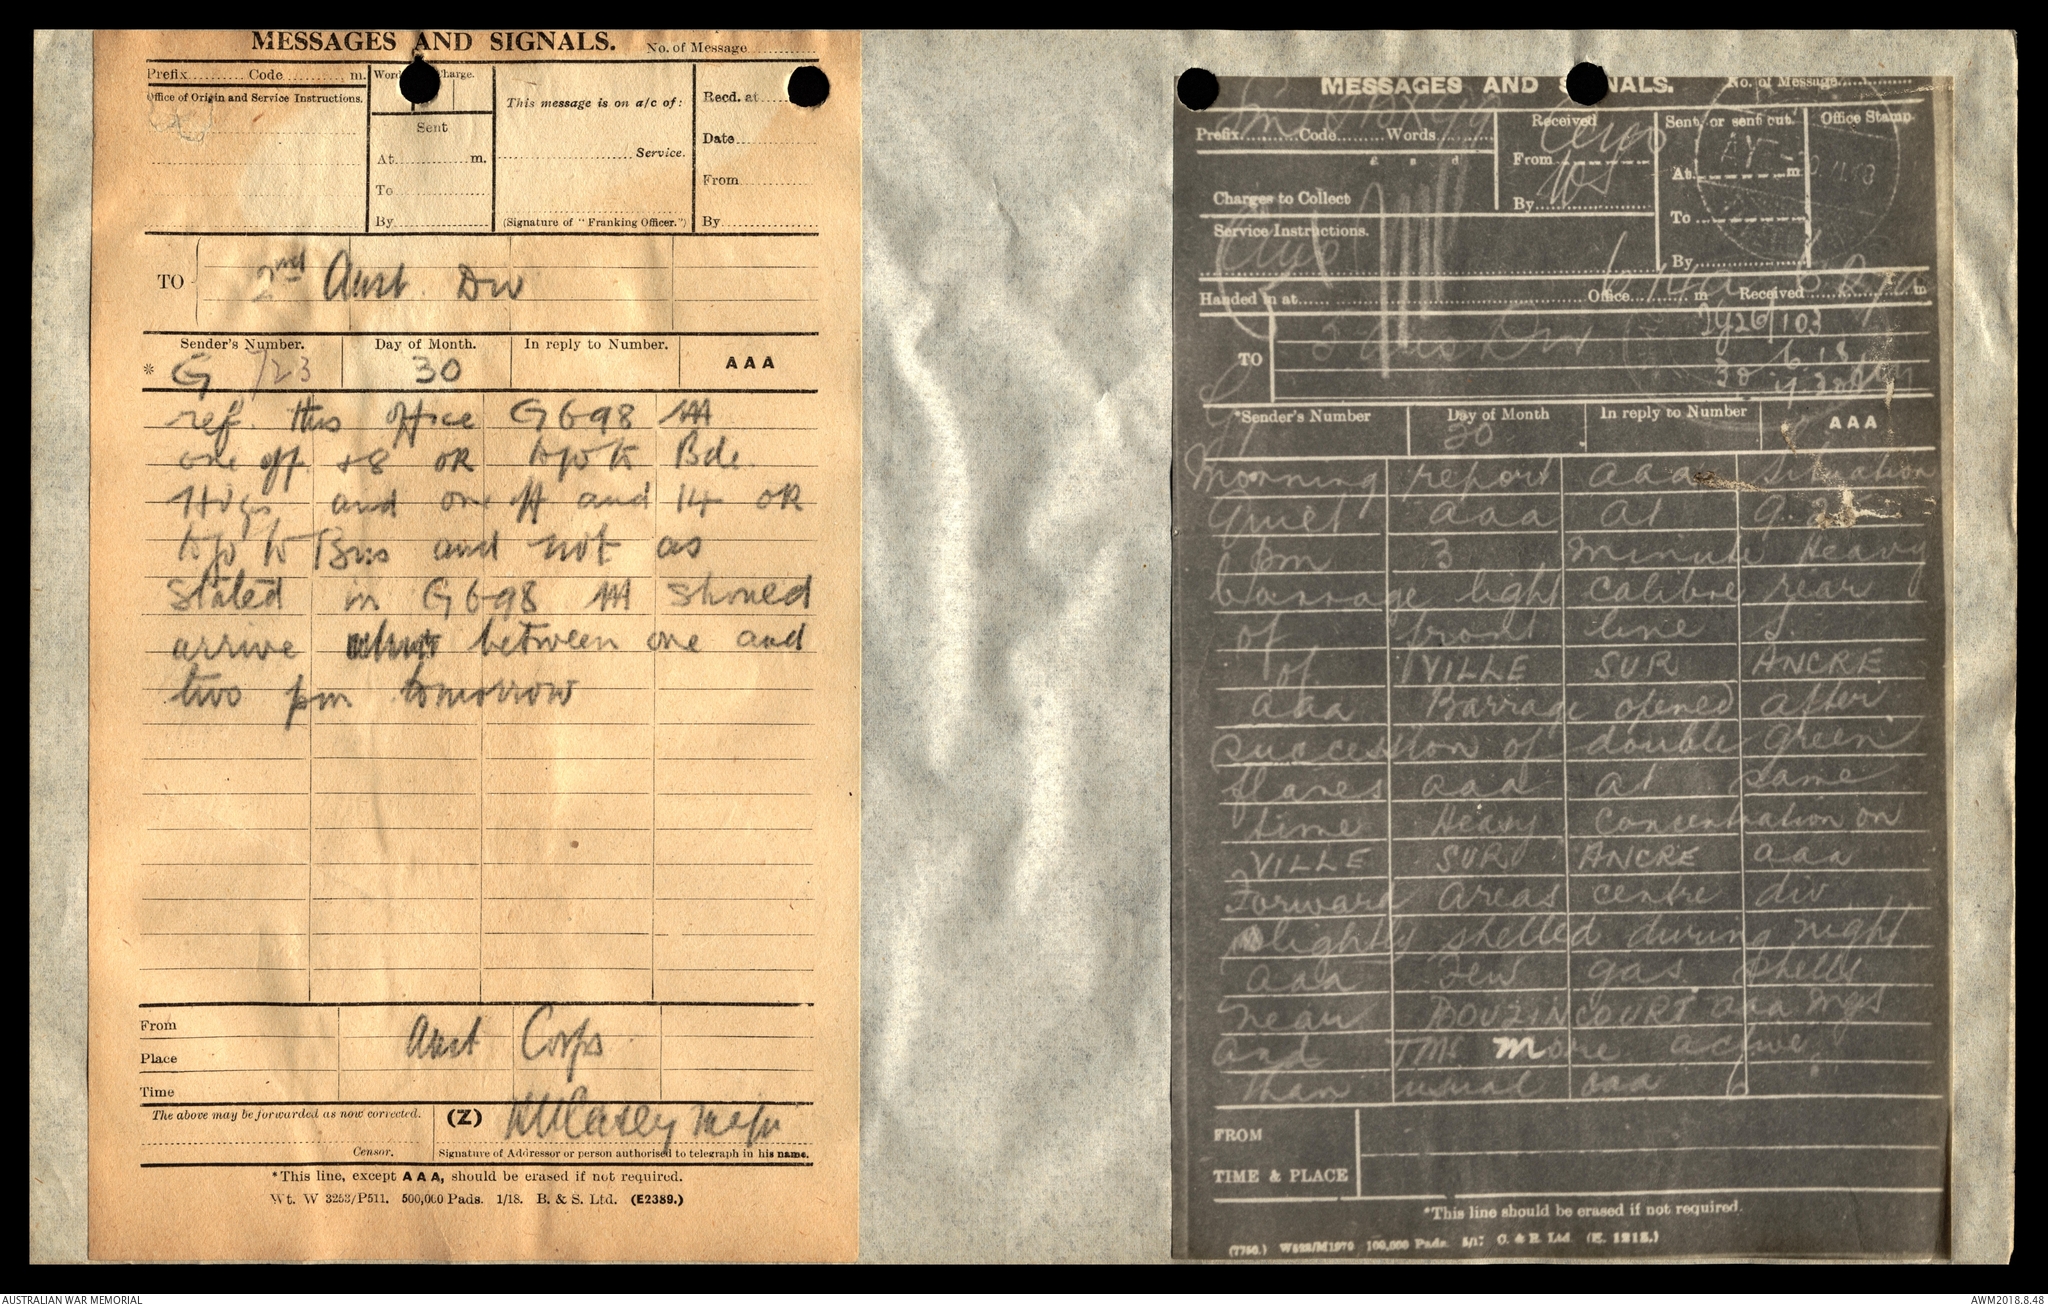 MESSAGES AND SIGNALS. No. of Message
Prefix Code m. Words Charge.
Office of Origin and Service Instructions.
Sent
At m.
To
By
This message is on a/c of:
Service.
(Signature of "Franking Officer.")
Recd. at
Date
From
By
TO 2nd Aust. Div
Sender's Number. Day of Month. In reply to Number. AAA
* G 723 30
ref. this office G698 AAA
one off. +8 OR to Bde.
Hdqrs and one off and 14 OR
to Bns and not as
stated in G698 AAA should
arrive between one and
two pm tomorrow
From Aust Corps
Place
Time
The above may be forwarded as now corrected. (Z) Casey Major
Censor. Signature of Addressor or person authorised to telegraph in his name.
*This line, except AAA, should be erased if not required.
Wt. W 3253/P511. 500,000 Pads. 1/18. B. & S. Ltd. (E2389.)
MESSAGES AND SIGNALS. No. of Message
Prefix Code Words
£ s d
Charges to Collect
Service Instructions.
Received
From
By
Sent, or sent out.
At m
To
By
Office Stamp
Handed in at Office m Received m
TO Aus Div
30
*Sender's Number Day of Month In reply to Number AAA
30
Morning report aaa Situation
Quiet aaa At 9.25
pm 3 minute Heavy
barrage light calibre rear
of front line S.
of VILLE SUR ANCRE
aaa Barrage opened after
succession of double green
flares aaa at same
time Heavy concentration on
VILLE SUR ANCRE aaa
Forward areas centre div
slightly shelled during night
aaa Few gas shells
near BOUZINCOURT aaa Mgs
and TMs more active
than usual aaa 6
FROM
TIME & PLACE
*This line should be erased if not required.
(7756.) W528/M1970 100,000 Pads. 5/17 C. & R. Ltd. (E. 1213.)
AUSTRALIAN WAR MEMORIAL
AWM2018.8.48